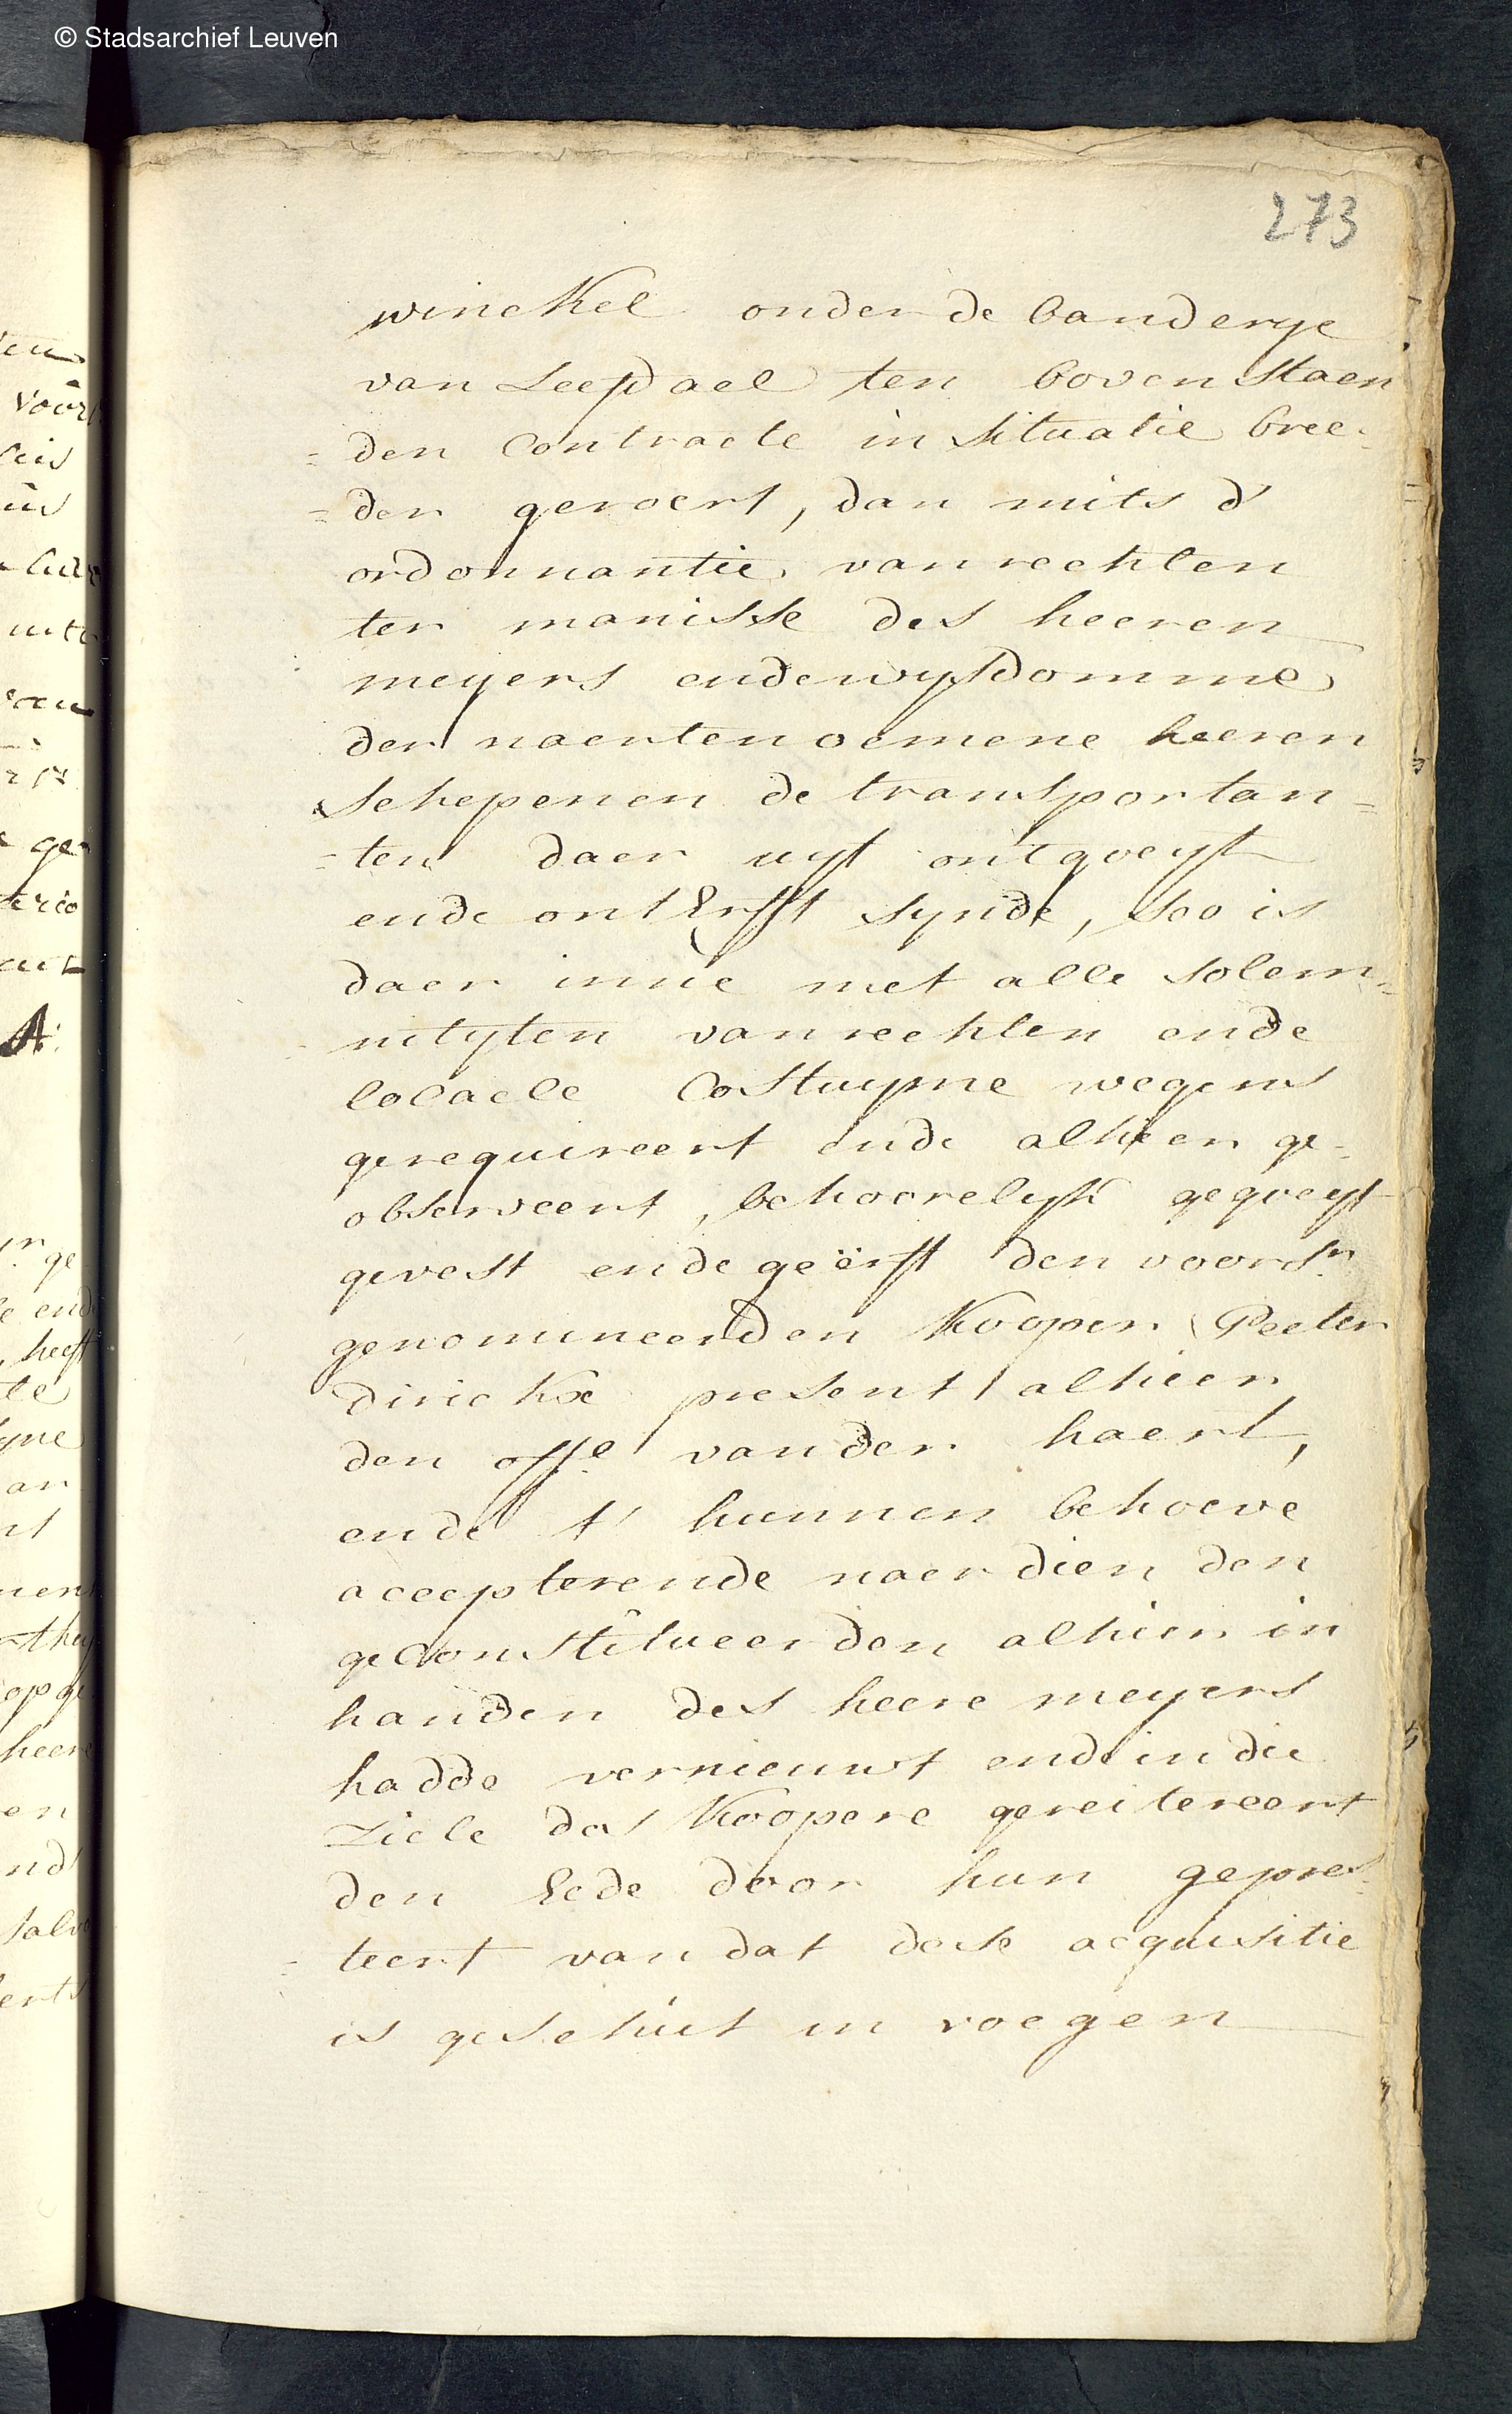 © Stadsarchief Leuven
273
winckel onder de banderye
van Leefdael ten boven staen
= den Contracte in situatie bree-
= der geroert, dan mits d'
ordonnantie van rechten
ter manisse des heeren
meyers ende wysdomme
der naertenoemene heeren
schepenen de transportan=
= ten daer uyt ontgoeyt
ende ont Erfft synde, soo is
daer inne met alle solem=
nityten van rechten ende
locaele Costuyme wegens
gerequireert ende alhier ge=
observeert, behoorelyk gegoeyt
gevest ende geërft den voors.n
genomineerden Kooper Peeter
dirickx present alhier
den off.e van der haert,
ende t' hunnen behoeve
accepterende naer dien den
geconstitueerden alhier in
handen des heere meyers
hadde vernieuwt ende in die
ziele des Koopere gereitereert
den Eede door hun gepres=
= teert van dat dese acquisitie
is geschiet in voegen